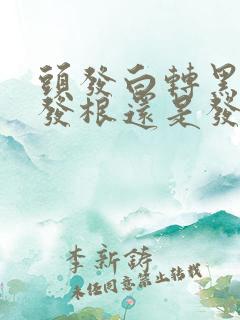 頭發白轉黑
發根還是發
李新鑄
未經同意禁止轉載